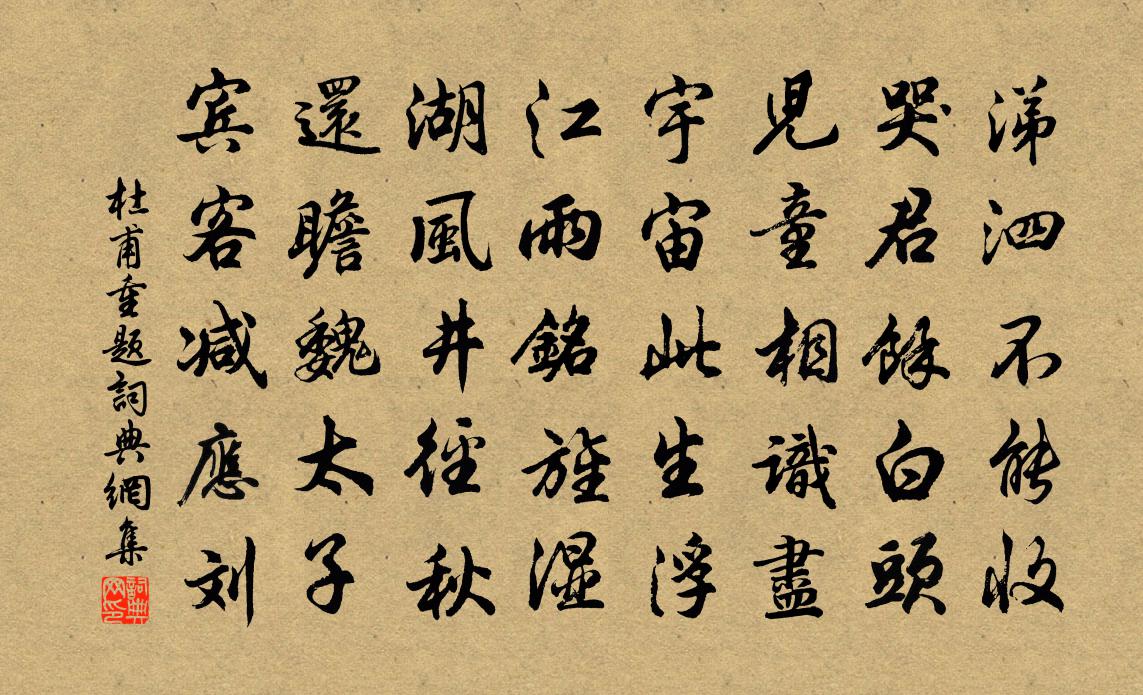 涕泗不能收
哭君餘白頭
児童相識盡
宇宙此生浮
江雨銘旌濕
湖風井徑秋
還瞻魏太子
宾客减應刘
杜甫重題詞典網集
詞典网印